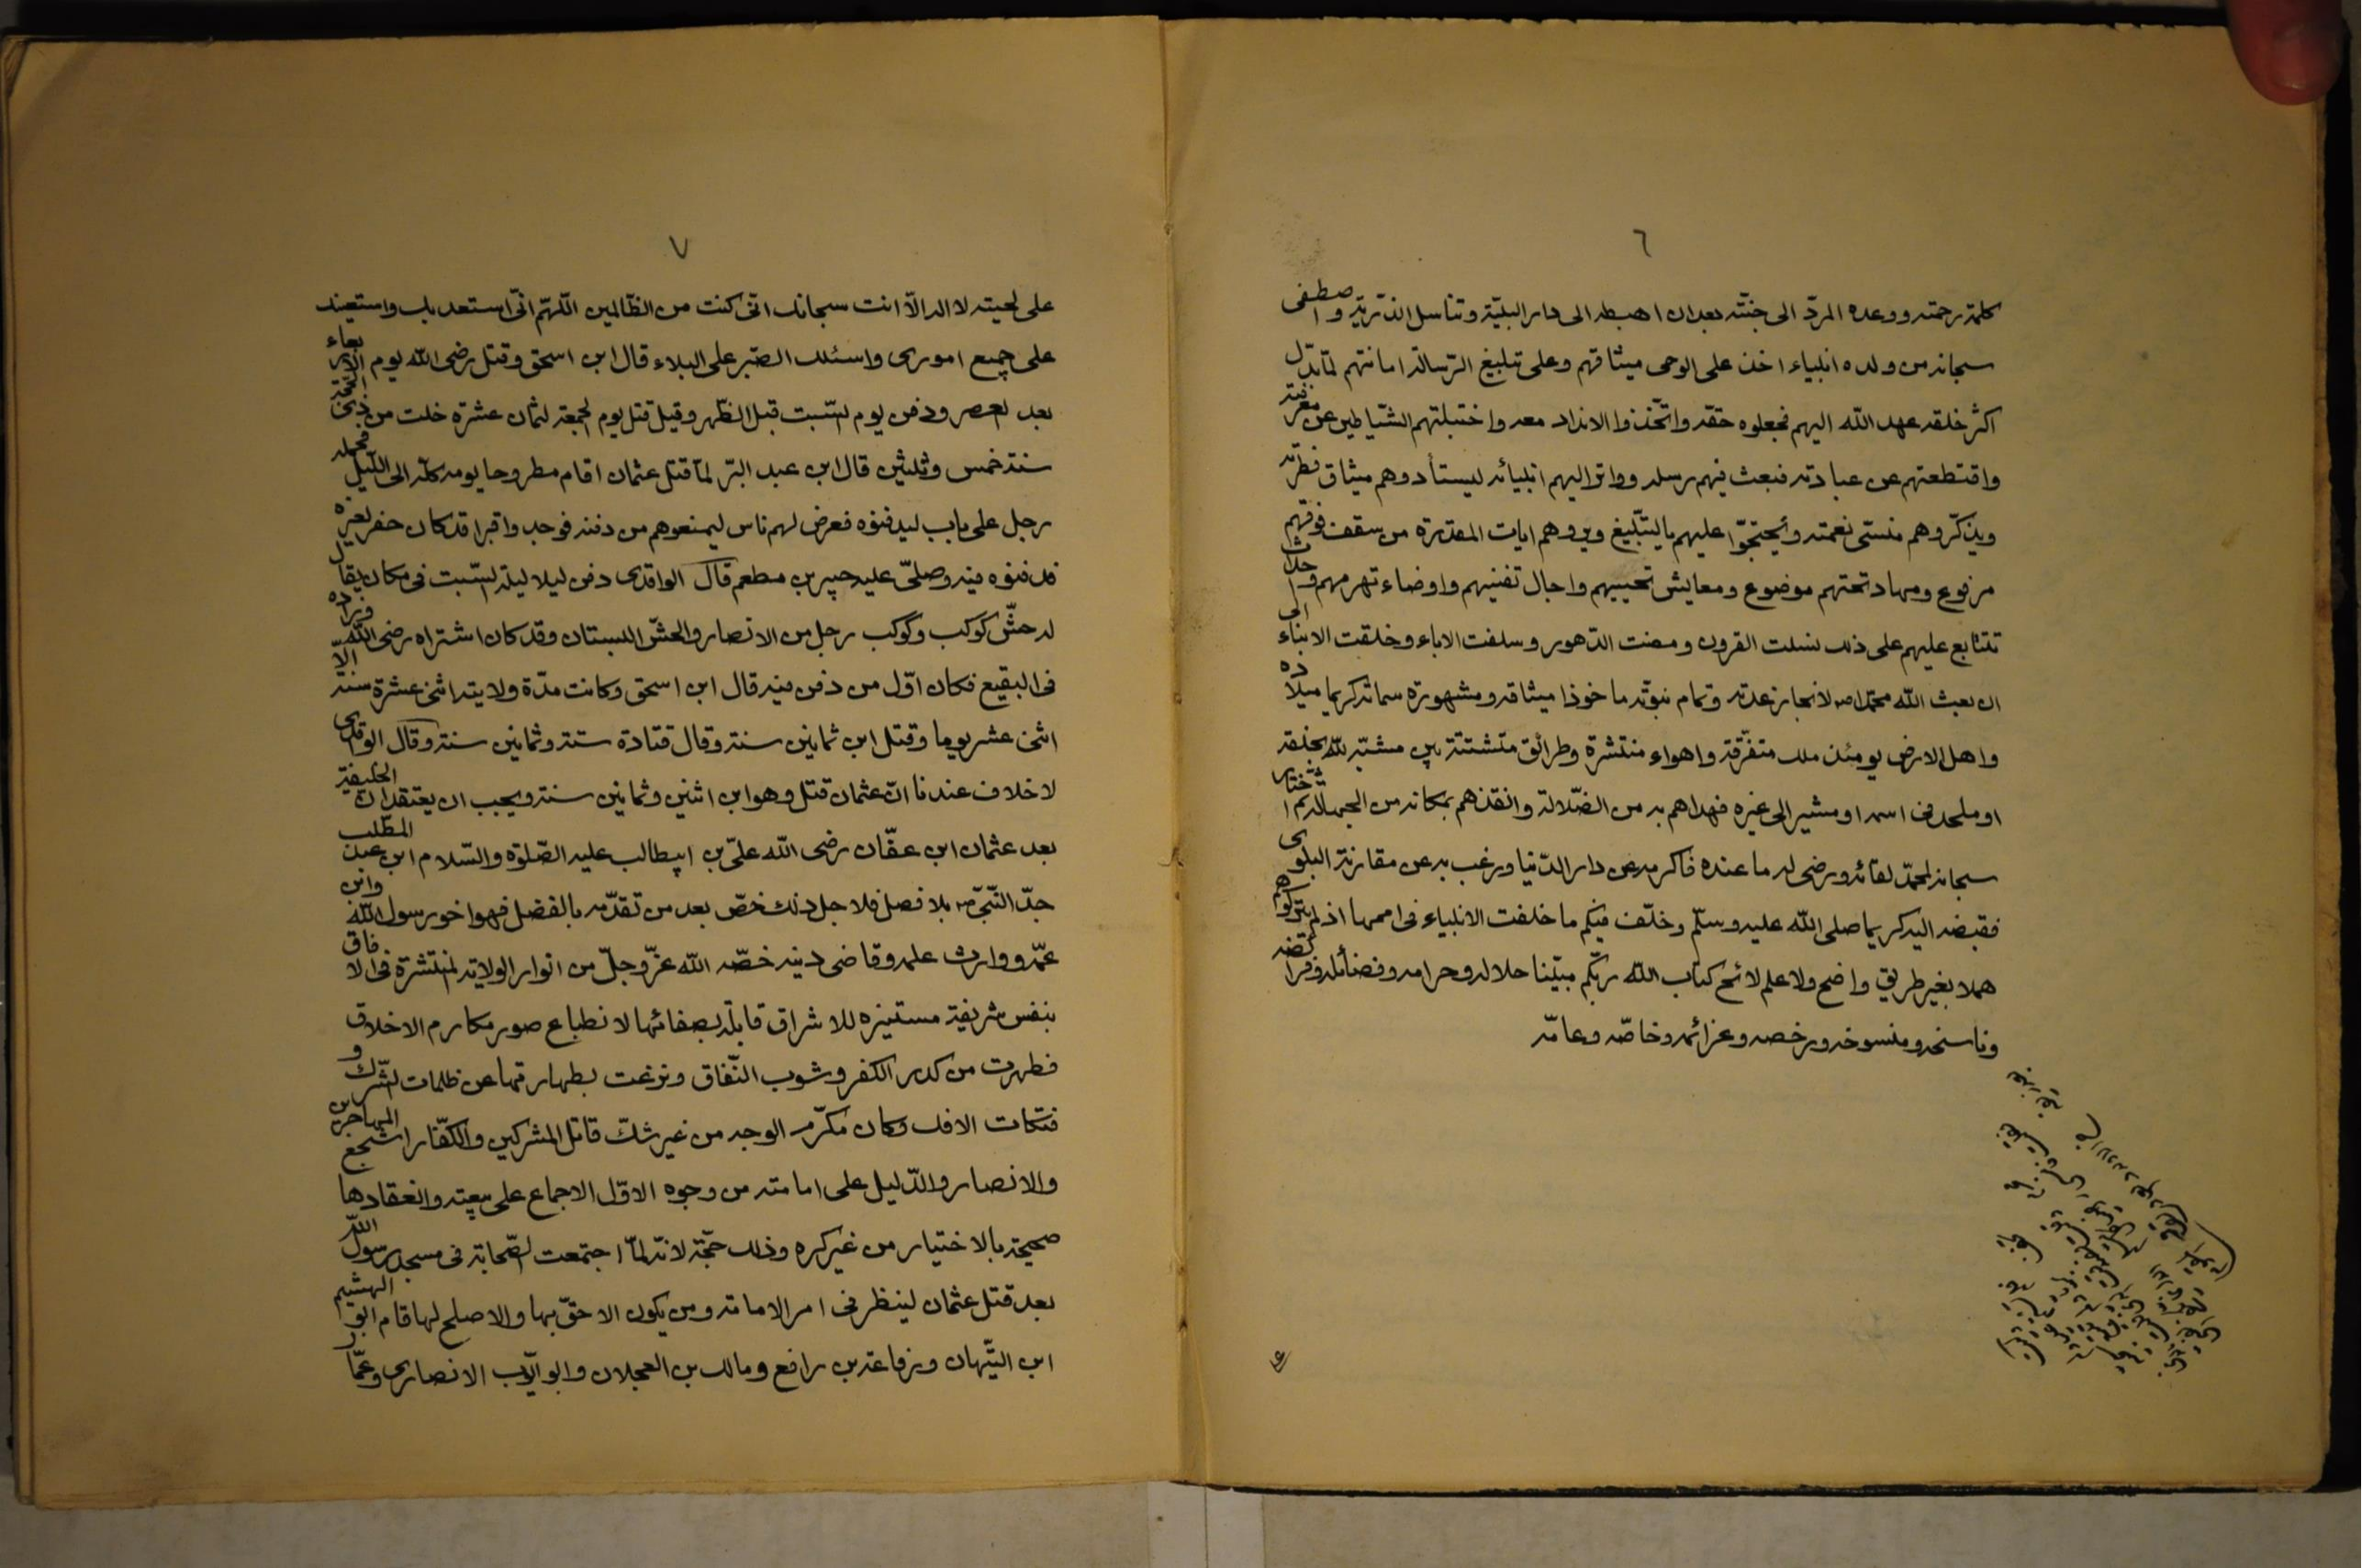 ٦
كلمة رحمته ووعده المردّ الى جنّته بعد ان اهبطه الى دار البليّة وتناسل الذّرّيّة واصطفى
سبحانه من ولده انبياء اخذ على الوحى ميثاقهم وعلى تبليغ الرّسالة امانتهم لمّا بدّل
اكثر خلقه عهد الله اليهم فجعلوه حقّه واتّخذوا الانداد معه واختبلتهم الشّياطين عن معرفته
واقتطعتهم عن عبادته فبعث فيهم رسله وواتر اليهم انبيائه ليستأدوهم ميثاق فطرته
ويذكّروهم منسىّ نعمته ويحتجّوا عليهم بالتّبليغ ويروهم ايات المقدرة من سقف فوقهم
مرفوع ومهاد تحتهم موضوع ومعايش تحييهم واجال تفنيهم واوضاء تهرمهم واحداث
تتتابع عليهم على ذلك نسلت القرون ومضت الدّهور وسلفت الاباء وخلقت الابناء الى
ان بعث الله محمّدا ص لانجاز عدته وتمام نبوّته ماخوذا ميثاقه ومشهورة سماته كريما ميلاده
واهل الارض يومئذ ملل متفرّقة واهواء منتشرة وطرائق متشتتة بين مشبّه لله بخلقه
او ملحد فى اسمه او مشير الى غيره فهداهم به من الضّلالة وانقذهم بمكانه من الجهالة ثمّ اختار
سبحانه لمحمّد لقائه ورضى له ما عنده فاكرمه عن دار الدّنيا ورغب به عن مقارنة البلوى
فقبضه اليه كريما صلى الله عليه وسلّم وخلّف فيكم ما خلفت الانبياء فى اممها اذ لم يتركوهم
هملا بغير طريق واضح ولا علم لائح كتاب الله ربّكم مبيّنا حلاله وحرامه وفضائله وفرائضه
وناسخه ومنسوخه ورخصه وعزائمه وخاصّه وعامّه
٧
على لحيته لا اله الّا انت سبحانك انّى كنت من الظّالمين اللّهمّ انّى استعد بك واستعينك
على جميع امورى واسئلك الصّبر على البلاء قال ابن اسحق وقتل رضى الله يوم الاربعاء
بعد العصر ودفن يوم السّبت قبل الظّهر وقيل قتل يوم الجمعة لثمان عشرة خلت من ذى الحجّة
سنة خمس وثلثين قال ابن عبد البرّ لمّا قتل عثمان اقام مطروحا يومه كلّه الى اللّيل فحمله
رجل على باب ليدفنوه فعرض لهم ناس ليمنعوهم من دفنه فوجدوا قبرا قد كان حفر لغيره
فدفنوه فيه وصلّى عليه جبير بن مطعم قال الواقدى دفن ليلا ليلة السّبت فى مكان يقال
له حشّ كوكب وكوكب رجل من الانصار والحشّ البستان وقد كان اشتراه رضى الله وزاده
فى البقيع فكان اوّل من دفن فيه قال ابن اسحق وكانت مدّة ولايته اثنى عشرة سنة الّا
اثنى عشر يوما وقتل ابن ثمانين سنة وقال قتادة ستة وثمانين سنة وقال الواقدى
لا خلاف عندنا انّ عثمان قتل وهو ابن اثنين وثمانين سنة ويجب ان يعتقد ان الخليفة
بعد عثمان ابن عفّان رضى الله علىّ بن ابيطالب عليه الصّلوة والسّلام ابن عبد المطّلب
جدّ النّبىّ ص بلا فصل فلاجل ذلك خصّ بعد من تقدّمه بالفضل فهو اخو رسول الله وابن
عمّه ووارث علمه وقاضى دينه خصّه الله عزّ وجلّ من انوار الولاية المنتشرة فى الافاق
بنفس شريفة مستنيره للاشراق قابلة بصفائها لانطباع صور مكارم الاخلاق
فطهرت من كدر الكفر وشوب النّفاق ونزعت بطهارتها عن ظلمات الشّرك و
فتكات الافك وكان مكرّم الوجه من غير شكّ قاتل المشركين والكفّار اشجع المهاجرين
والانصار والدّليل على امامته من وجوه الاوّل الاجماع على بيعته وانعقادها
صحيحة بالاختيار من غير كره وذلك حجّة لانّه لمّا اجتمعت الصّحابة فى مسجد رسول الله
بعد قتل عثمان لينظر فى امر الامامة ومن يكون الاحقّ بها والاصلح لها قام ابو الهشيم
ابن التّيهان ورفاعة بن رافع ومالك بن العجلان وابو ايّوب الانصارى وعمّار